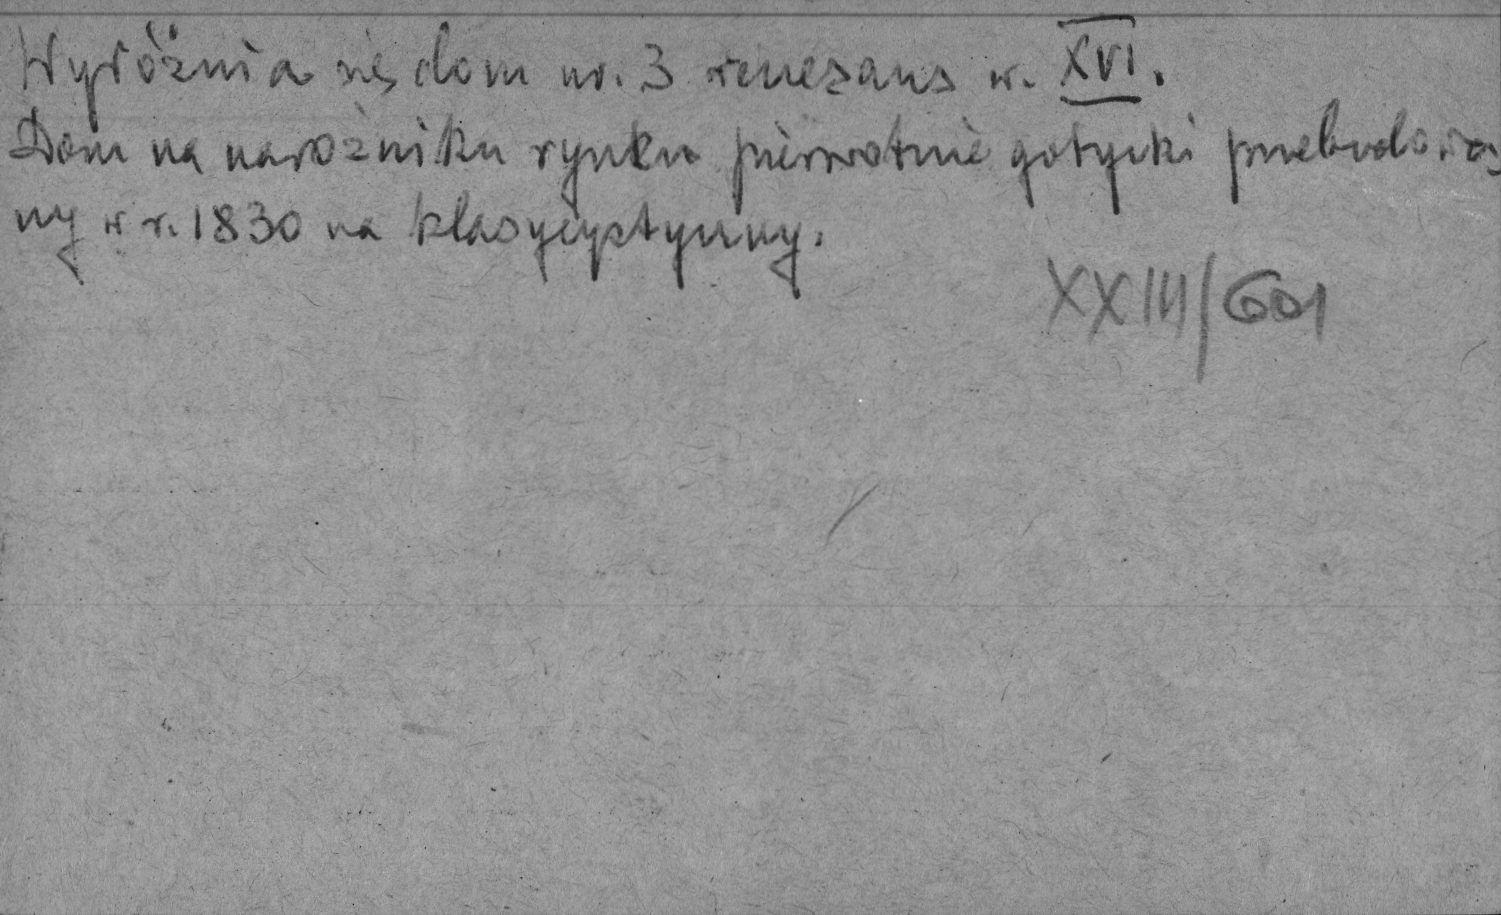 Wyróżnia się dom nr. 3 renesans w. XVI.
Dom na narożniku rynku pierwotnie gotycki przebudowa
ny w r. 1830 na klasycystyczny.
XXIII/601